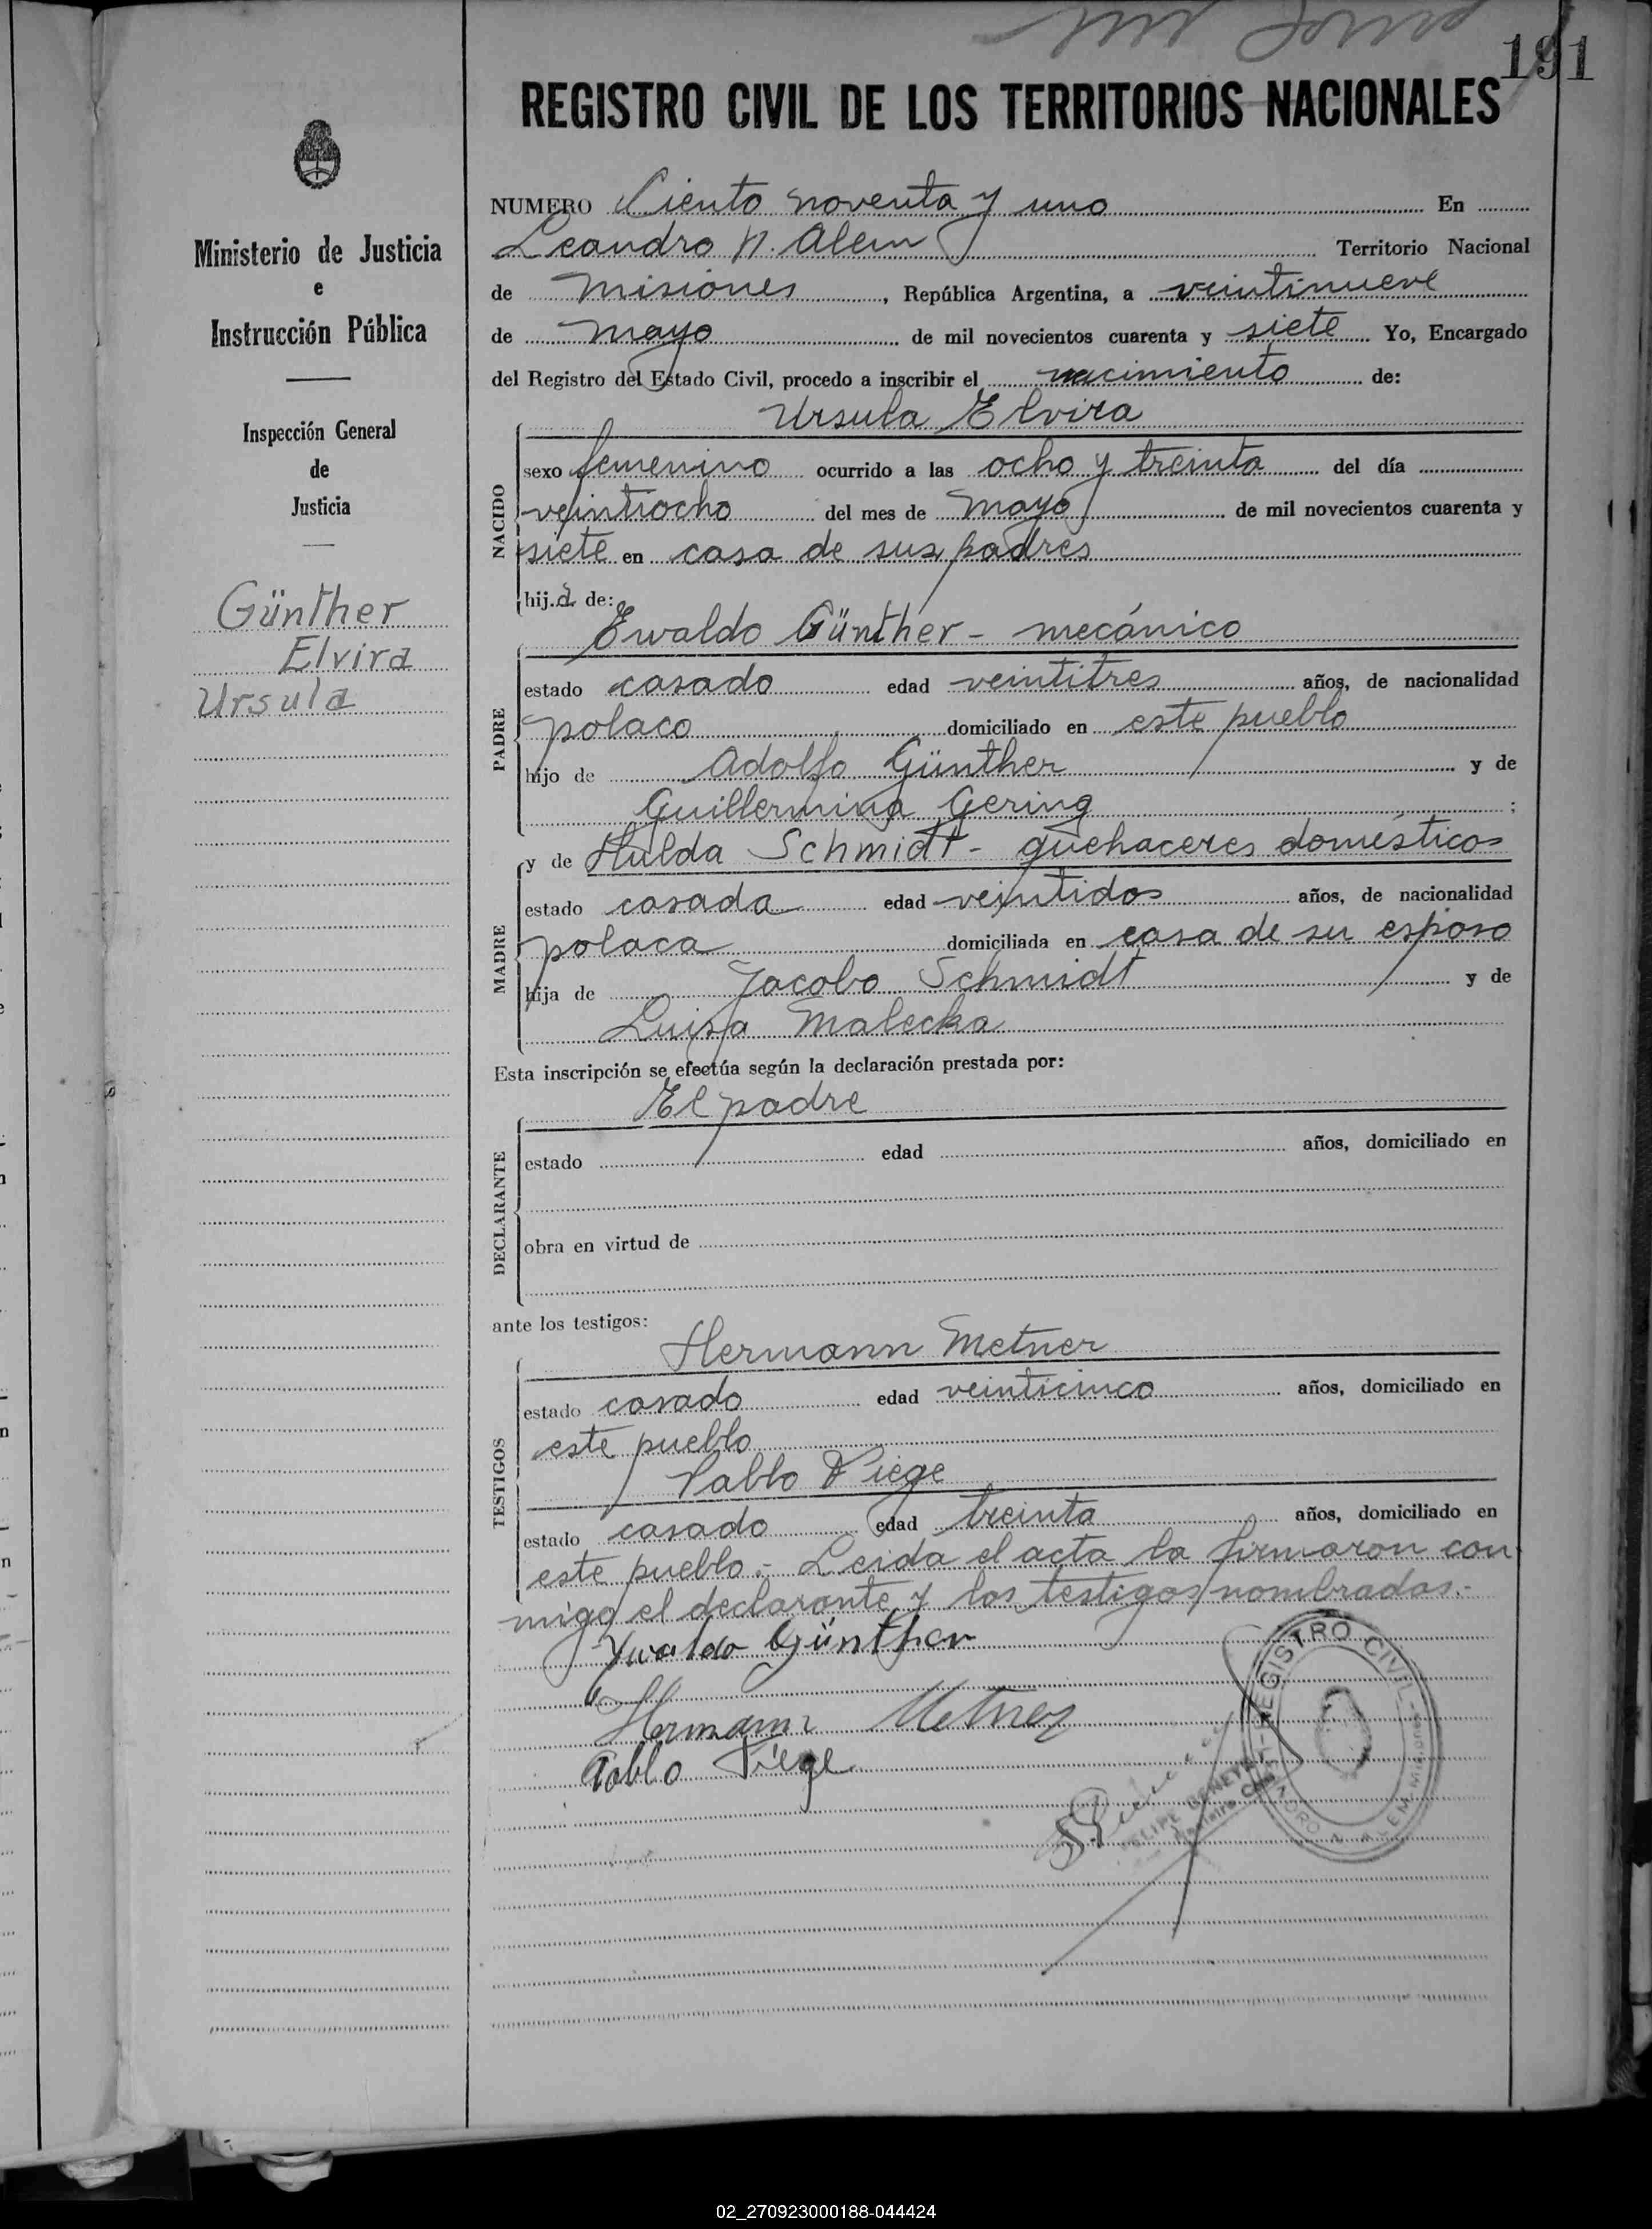 191
REGISTRO CIVIL DE LOS TERRITORIOS NACIONALES
Ministerio de Justicia
e
Instrucción Pública
Inspección General
de
Justicia
Günther
Elvira
Ursula
NUMERO Ciento noventa y uno En
Leandro N. Alem Territorio Nacional
de Misiones, República Argentina, a veintinueve
de mayo de mil novecientos cuarenta y siete Yo, Encargado
del Registro del Estado Civil, procedo a inscribir el nacimiento de:
NACIDO
Ursula Elvira
sexo femenino ocurrido a las ocho y treinta del día
veintiocho del mes de mayo de mil novecientos cuarenta y
siete en casa de sus padres
hij.a de:
PADRE
Ewaldo Günther - mecánico
estado casado edad veintitres años, de nacionalidad
polaco domiciliado en este pueblo
hijo de Adolfo Günther y de
Guillermina Gering ;
MADRE
y de Hulda Schmidt - quehaceres domésticos
estado casada edad veintidos años, de nacionalidad
polaca domiciliada en casa de su esposo
hija de Jacobo Schmidt y de
Luisa Malecka
Esta inscripción se efectúa según la declaración prestada por:
DECLARANTE
El padre
estado edad años, domiciliado en
obra en virtud de
ante los testigos:
TESTIGOS
Hermann Metner
estado casado edad veinticinco años, domiciliado en
este pueblo
Pablo Piege
estado casado edad treinta años, domiciliado en
este pueblo.- Leida el acta la firmaron con
migo el declarante y los testigos nombrados.-
Ywaldo Günther
Hermann Metner
Pablo Piege
REGISTRO CIVIL
LEANDRO N. ALEM Misiones
02_270923000188-044424